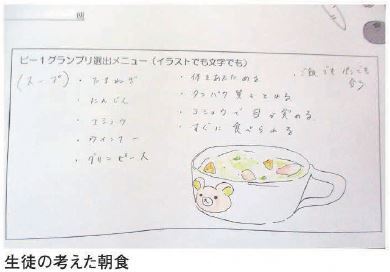 ピー1グランプリ選出メニュー(イラストでも文字でも)
(スープ)
・たまねぎ
・にんじん
・コショウ
・ウインナー
・グリンピース
・体をあたためる
・タンパク質もとれる
・コショウで目が覚める
・すぐに食べられる
・ご飯でもパンでも
合う
生徒の考えた朝食